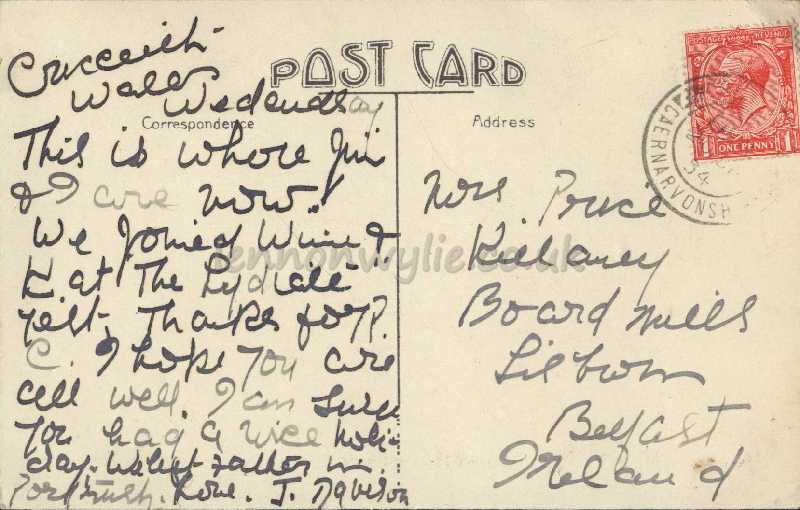 POST CARD
Correspondence
Criccieth
Wales
Wednesday
This is where Jim
& I are now.
We joined Winnie &
K. at The Lydiate
yest. Thanks for P.
C. I hope you are
all well. I am sure
you had a nice holi-
day. Father in
Portrush. Love. J. Davison
Address
Mrs. Price
Killaney
Board Mills
Lisburn
Belfast
Ireland
POSTAGE REVENUE
ONE PENNY
1 1
CAERNARVONSH
34
lennonwylie.co.uk